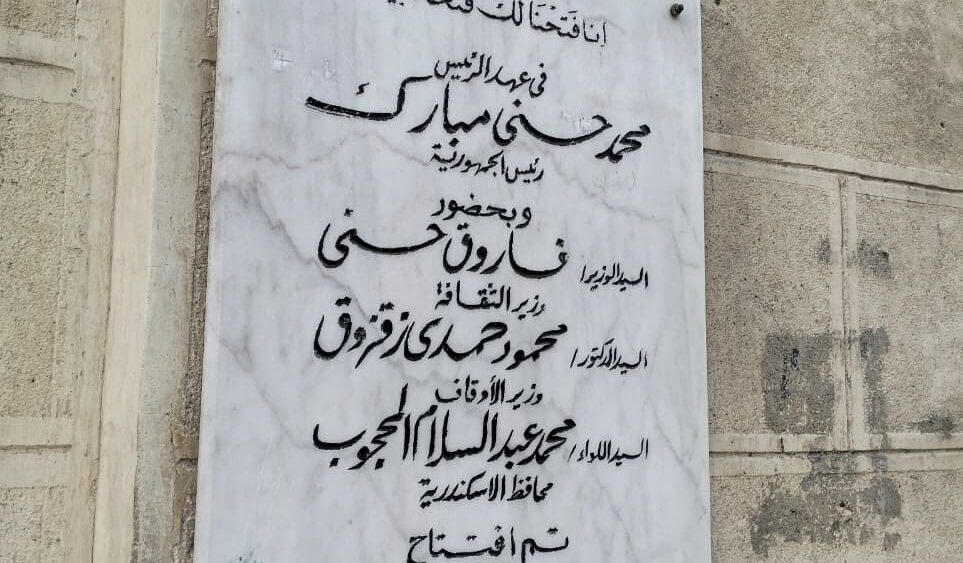 انا فَتَحْنَا لَكَ
فى عهد الرئيس
محمد حسنى مبارك
رئيس الجمهورية
وبحضور
السيد الوزير/ فاروق حسنى
وزير الثقافة
السيد الدكتور/ محمود حمدى زقزوق
وزير الأوقاف
السيد اللواء/ محمد عبد السلام المحجوب
محافظ الاسكندرية
تم افتتاح